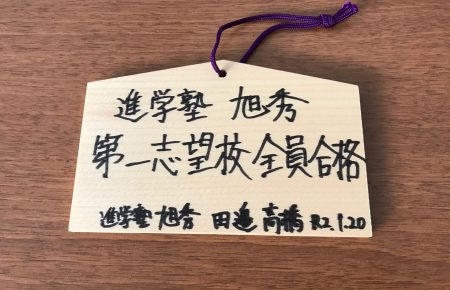 進学塾 旭秀
第一志望校全員合格
進学塾 旭秀 田邉 高橋 R2.1.20